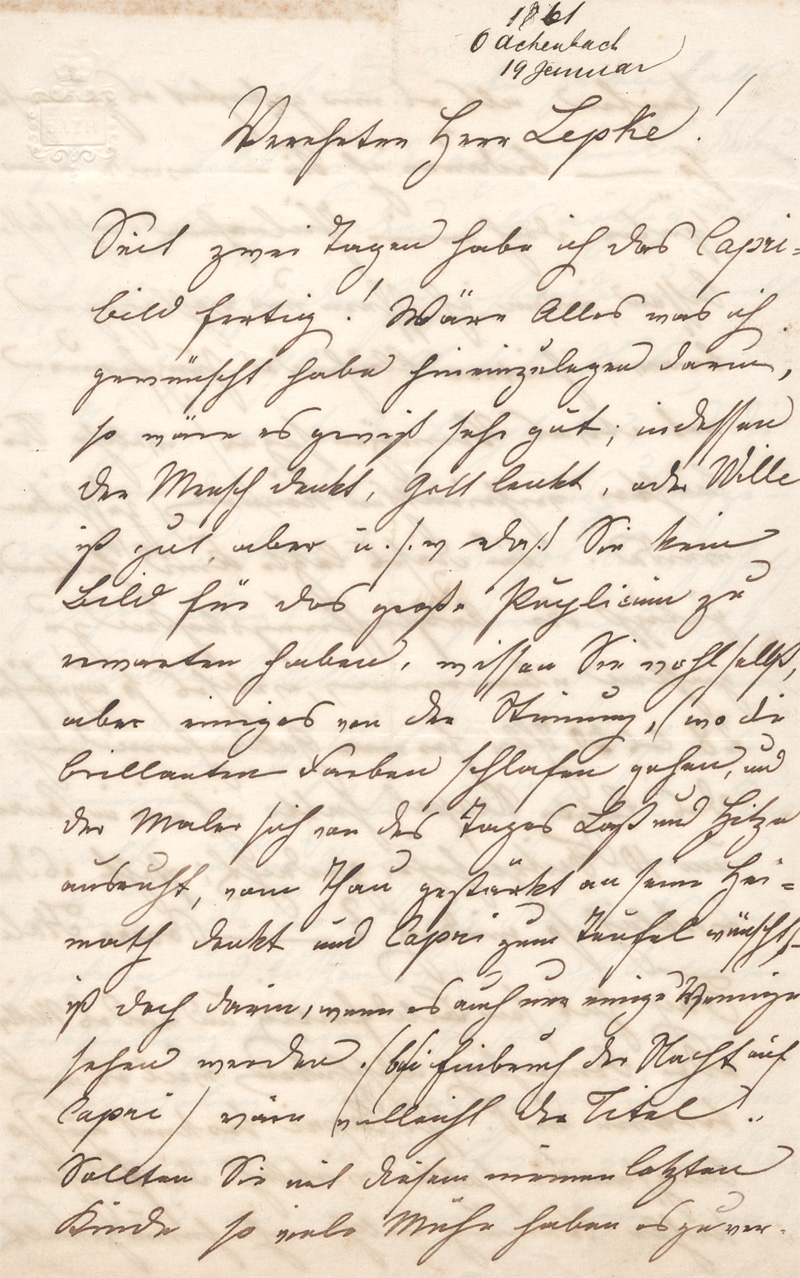 1861
O Achenbach
19 Januar
Verehrter Herr Lepke!
Seit zwei Tagen habe ich das Capri-
bild fertig! Wäre Alles was ich
gewünscht habe hineinzulegen darin,
so wäre es gewiß sehr gut; indessen
der Mensch denkt, Gott lenkt, oder Wille
ist gut, aber u.s.w daß Sie kein
Bild für das große Publicum zu
erwarten haben, wissen Sie wohl selbst,
aber einiges von der Stimmung, (wo die
brillanten Farben schlafen gehen, und
der Maler sich von des Tages Last und Hitze
ausruht, vom Thau gestärkt an seine Hei=
math denkt und Capri zum Teufel wünscht)
ist doch darin, wenn es auch nur einige Wenige
sehen werden. (bei Einbruch der Nacht auf
Capri) wäre vielleicht der Titel.
Sollten Sie mit diesem meinem letzten
Kinde so viele Mühe haben es zu ver-